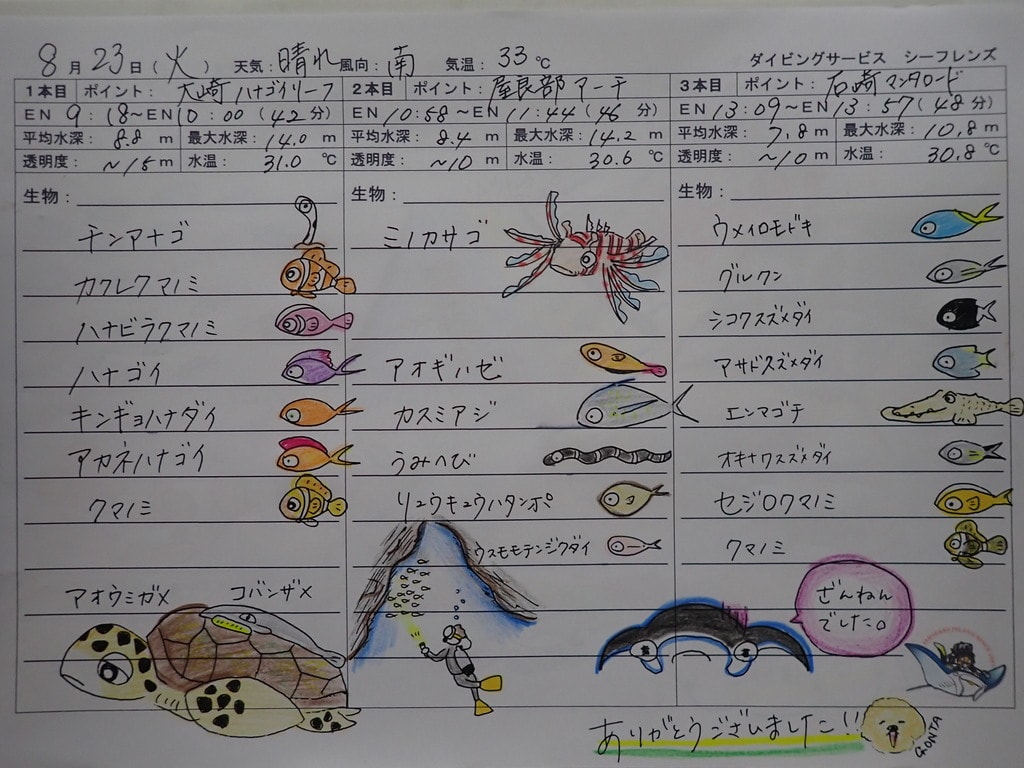 8月23日(火) 天気:晴れ 風向:南 気温:33℃ ダイビングサービス シーフレンズ
1本目 ポイント:大崎ハナゴイリーフ
EN 9:18～EN 10:00(42分)
平均水深:8.8m 最大水深:14.0m
透明度:~15m 水温:31.0℃
生物:
チンアナゴ
カクレクマノミ
ハナビラクマノミ
ハナゴイ
キンギョハナダイ
アカネハナゴイ
クマノミ
アオウミガメ コバンザメ
2本目 ポイント:屋良部アーチ
EN 10:58～EN 11:44(46分)
平均水深:8.4m 最大水深:14.2m
透明度:~10m 水温:30.6℃
生物:
ミノカサゴ
アオギハゼ
カスミアジ
うみへび
リュウキュウハタンポ
ウスモモテンジクダイ
3本目 ポイント:石崎マンタロード
EN 13:09～EN 13:57(48分)
平均水深:7.8m 最大水深:10.8m
透明度:~10m 水温:30.8℃
生物:
ウメイロモドキ
グルクン
シコクスズメダイ
アサドスズメダイ
エンマゴチ
オキナワスズメダイ
セジロクマノミ
クマノミ
ざんねん
でした。
ありがとうございました!!
GONTA